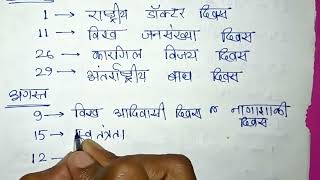 1 → राष्ट्रीय डॉक्टर दिवस
11 → विश्व जनसंख्या दिवस
26 → कारगिल विजय दिवस
29 → अंतर्राष्ट्रीय बाघ दिवस
अगस्त
9 → विश्व आदिवासी दिवस & नागासाकी दिवस
15 → स्वतंत्रता
12 →